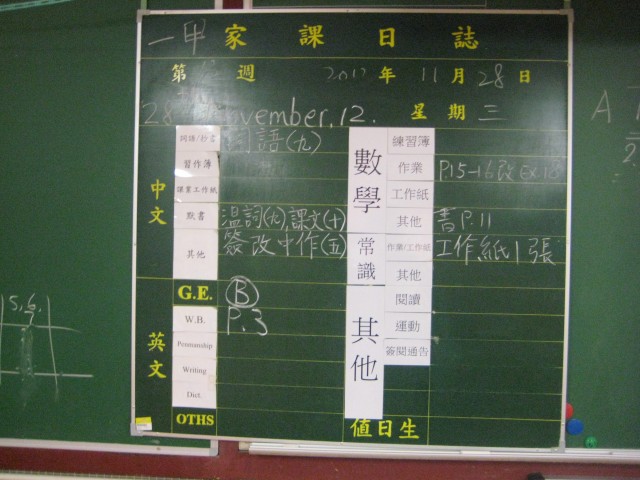 一甲 家課日誌
第 週 2012年11月28日
28 November.12. 星期三
中文
詞語/抄書 詞語(九)
習作簿
課業工作紙
默書 溫詞(九),課文(十)
其他 簽改中作(五)
英文
G.E. B
W.B. P.3
Penmanship
Writing
Dict.
OTHS
數學
練習簿
作業 P.15-16改
工作紙
其他 書P.11
常識
作業/工作紙 工作紙1張
其他
其他
閱讀
運動
簽閱通告
值日生
5.6.
A